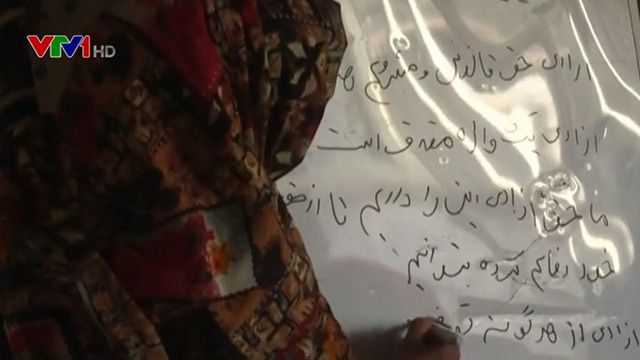 VTV1 HD
ازادی حق قانونی و مشروع
ازادی یک واژه مقدس است
ما حق ازادی این را داریم تا از حقو
خود دفاع کرده بتوانیم
ازادی از هر گونه